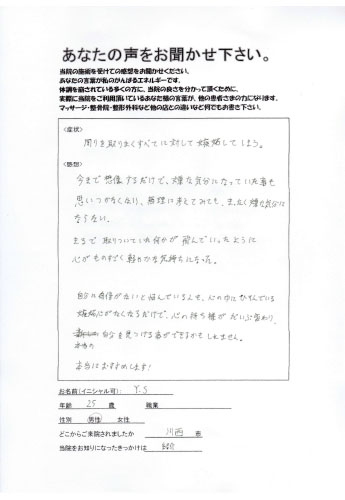 あなたの声をお聞かせ下さい。
当院の施術を受けての感想をお聞かせください。
あなたの言葉が私のがんばるエネルギーです。
体調を崩されている多くの方に、当院の良さを分かって頂くために、
実際に当院をご利用頂いているあなた様の言葉が、他の患者さまの力になります。
マッサージ・整骨院・整形外科など他の店との違いなど何でもお書き下さい。
〈症状〉
周りを取りまくすべてに対して嫉妬してしまう。
〈感想〉
今まで想像するだけで、嫌な気分になっていた事も
思いつかなくなり、無理に考えてみても、まったく嫌な気分に
ならない。
まるで取りついていた何かが飛んでいったように
心がものすごく軽やかな気持ちになった。
自分に自信がないと悩んでいる人も、心の中にひそんでいる
嫉妬心がなくなるだけで、心の持ち様がだいぶ変わり、
本当の
自分を見つける事ができるかもしれません。
本当におすすめします!
お名前(イニシャル可): Y.S
年齢 25 歳 職業
性別 男性 女性
どこからご来院されましたか 川西 市
当院をお知りになったきっかけは 紹介